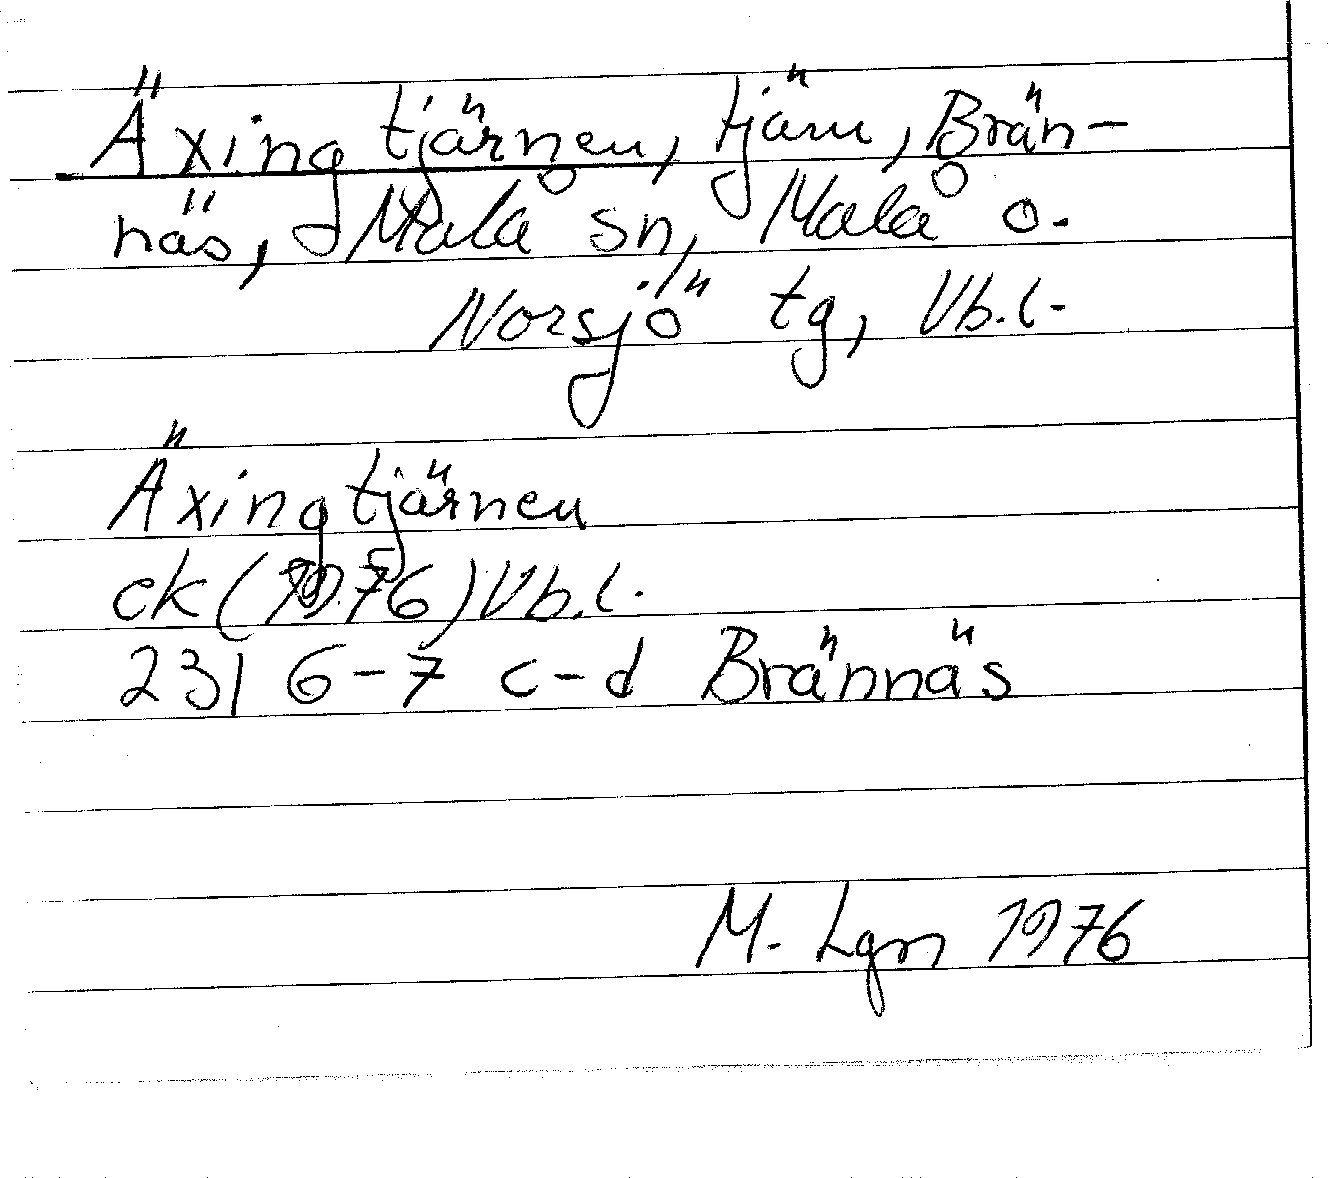 Äxingtjärnen, tjärn, Brän-
näs, Malå sn, Malå o.
Norsjö tg, Vb.l.
Äxingtjärnen
ek (1976) Vb.l.
23I 6-7 c-d Brännäs
M. Lgn 1976